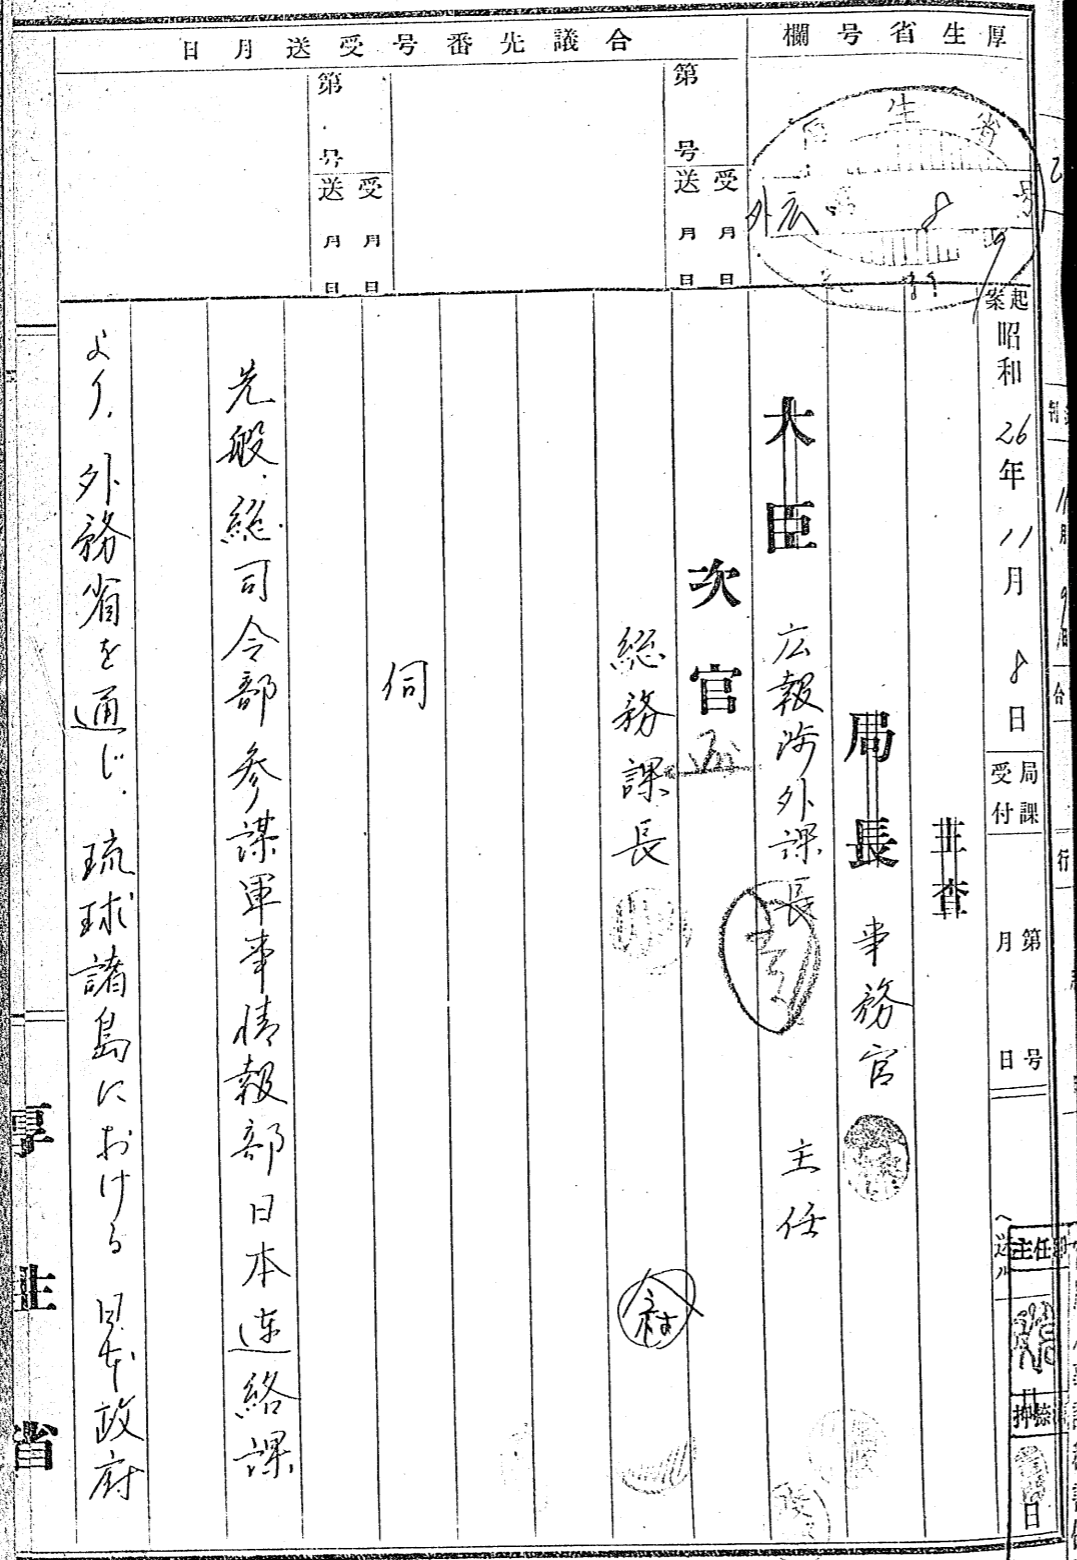 厚生省号欄
合議先番号受送月日
第 号
受 月 日
送 月 日
第 号
受 月 日
送 月 日
厚生省
外広 8 号
起案
昭和26年11月8日
局課受付
第 号
月 日
へ送ル
主査
局長 事務官
大臣
広報渉外課長 主任
次官
総務課長
伺
先般、総司令部参謀軍事情報部日本連絡課
より、外務省を通じ、琉球諸島における日本政府
厚生省
主任